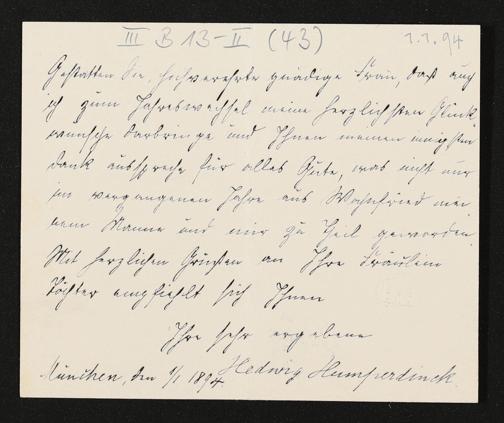 III B 13-II (43)
1.1.94
Gestatten Sie, hochverehrte gnädige Frau, daß auch
ich zum Jahreswechsel meine herzlichsten Glück
wünsche darbringe und Ihnen meinen innigsten
Dank ausspreche für alles Gute, was nicht nur
im vergangenen Jahre aus Wahnfried mei
nem Manne und mir zu Theil geworden.
Mit herzlichen Grüßen an Ihre Fräulein
Töchter empfiehlt sich Ihnen
Ihre sehr ergebene
Hedwig Humperdinck.
München, den 1/1 1894.